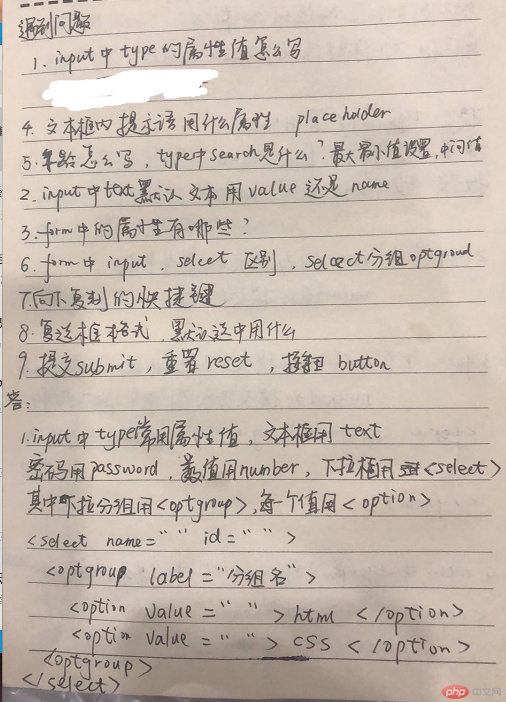 遇到问题
1. input中type的属性值怎么写
4. 文本框内提示语用什么属性 placeholder
5. 年龄怎么写,type中search是什么?最大最小值设置,中间值
2. input中text默认文本用value还是name
3. form中的属性有哪些?
6. form中input,select区别,select分组optgroud
7. 向下复制的快捷键
8. 复选框格式,默认选中用什么
9. 提交submit,重置reset,按钮button
答:
1. input中type常用属性值,文本框用text
密码用password,数值用number,下拉框用<select>
其中下拉分组用<optgroup>,每个值用<option>
<select name=" " id=" ">
<optgroup label="分组名">
<option value=" "> html </option>
<option value=" "> css </option>
<optgroup>
</select>
php 中文网